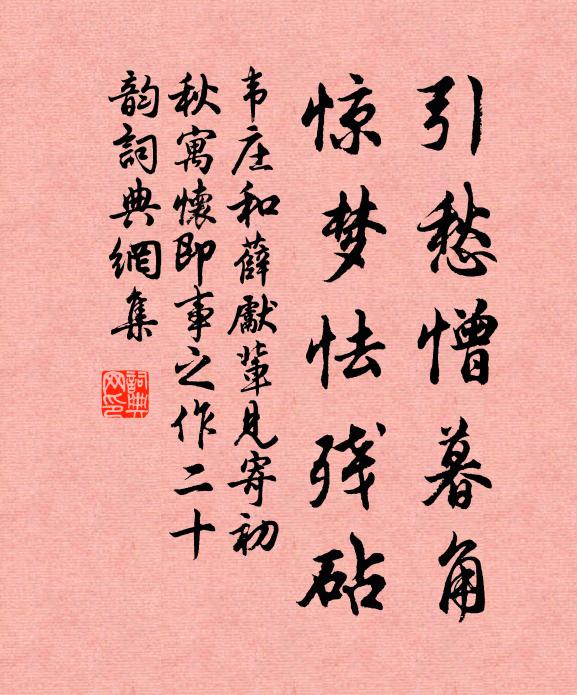 引愁憎暮角
惊梦怯残砧
韦庄和薛勮辈见寄初
秋寓懷即事之作二十
韵詞典網集
詞典
网印